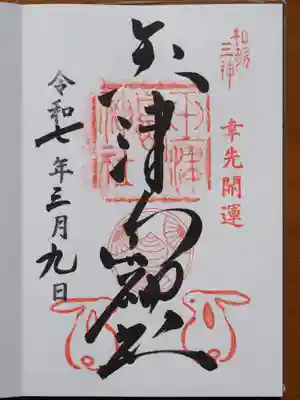 和歌
三神
幸先開運
玉津島神社
令和七年三月九日